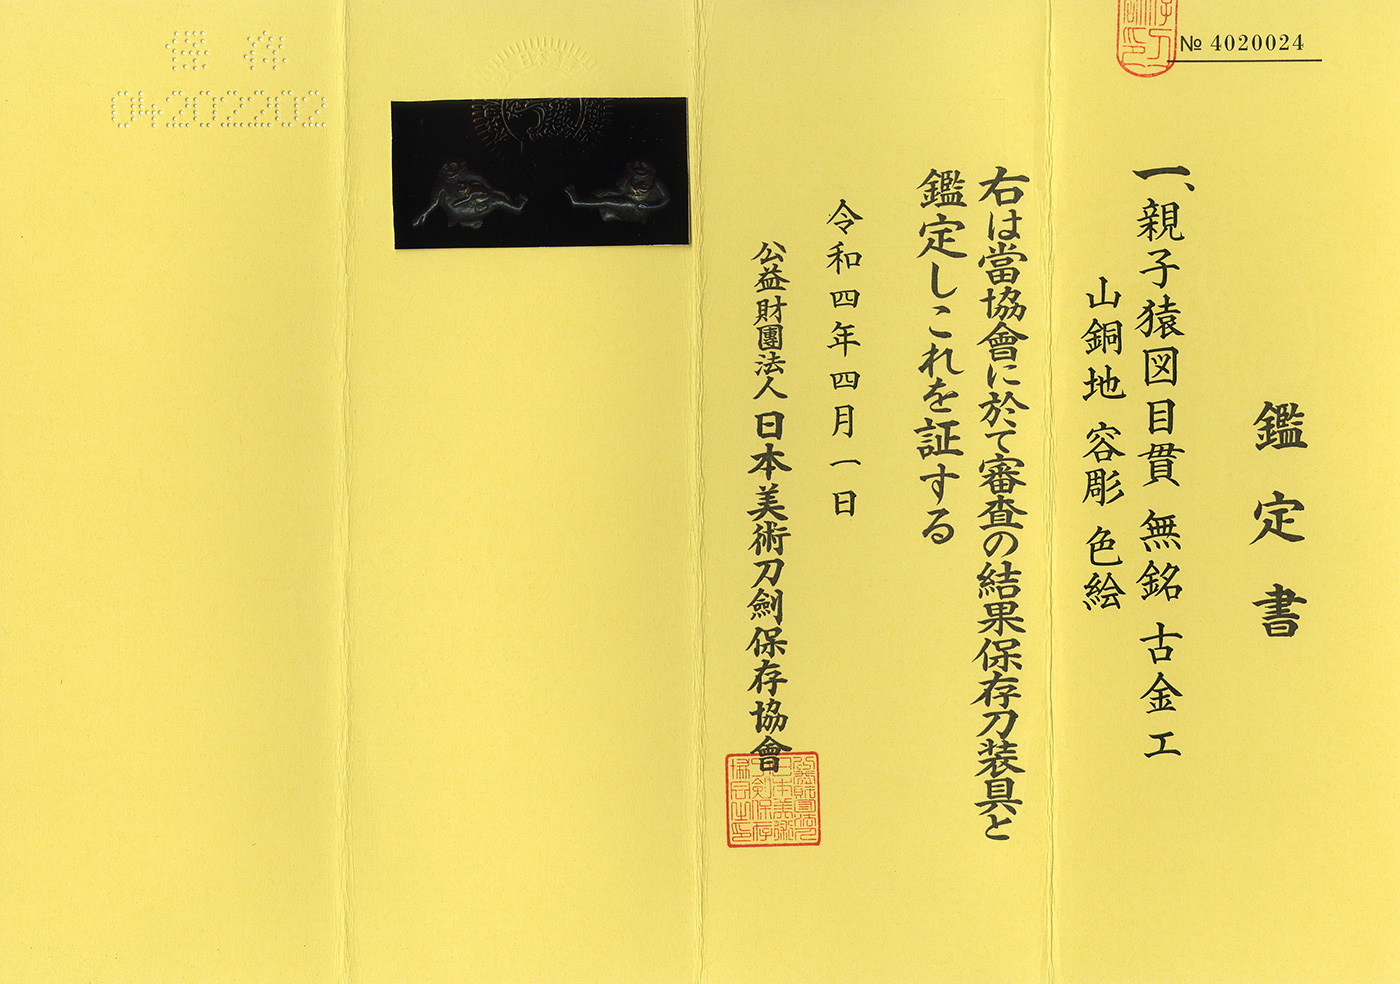 № 4020024
鑑定書
一、親子猿図目貫 無銘 古金工
山銅地 容彫 色絵
右は當協會に於て審査の結果保存刀装具と
鑑定しこれを証する
令和四年四月一日
公益財團法人 日本美術刀劍保存協會
保存
04202202